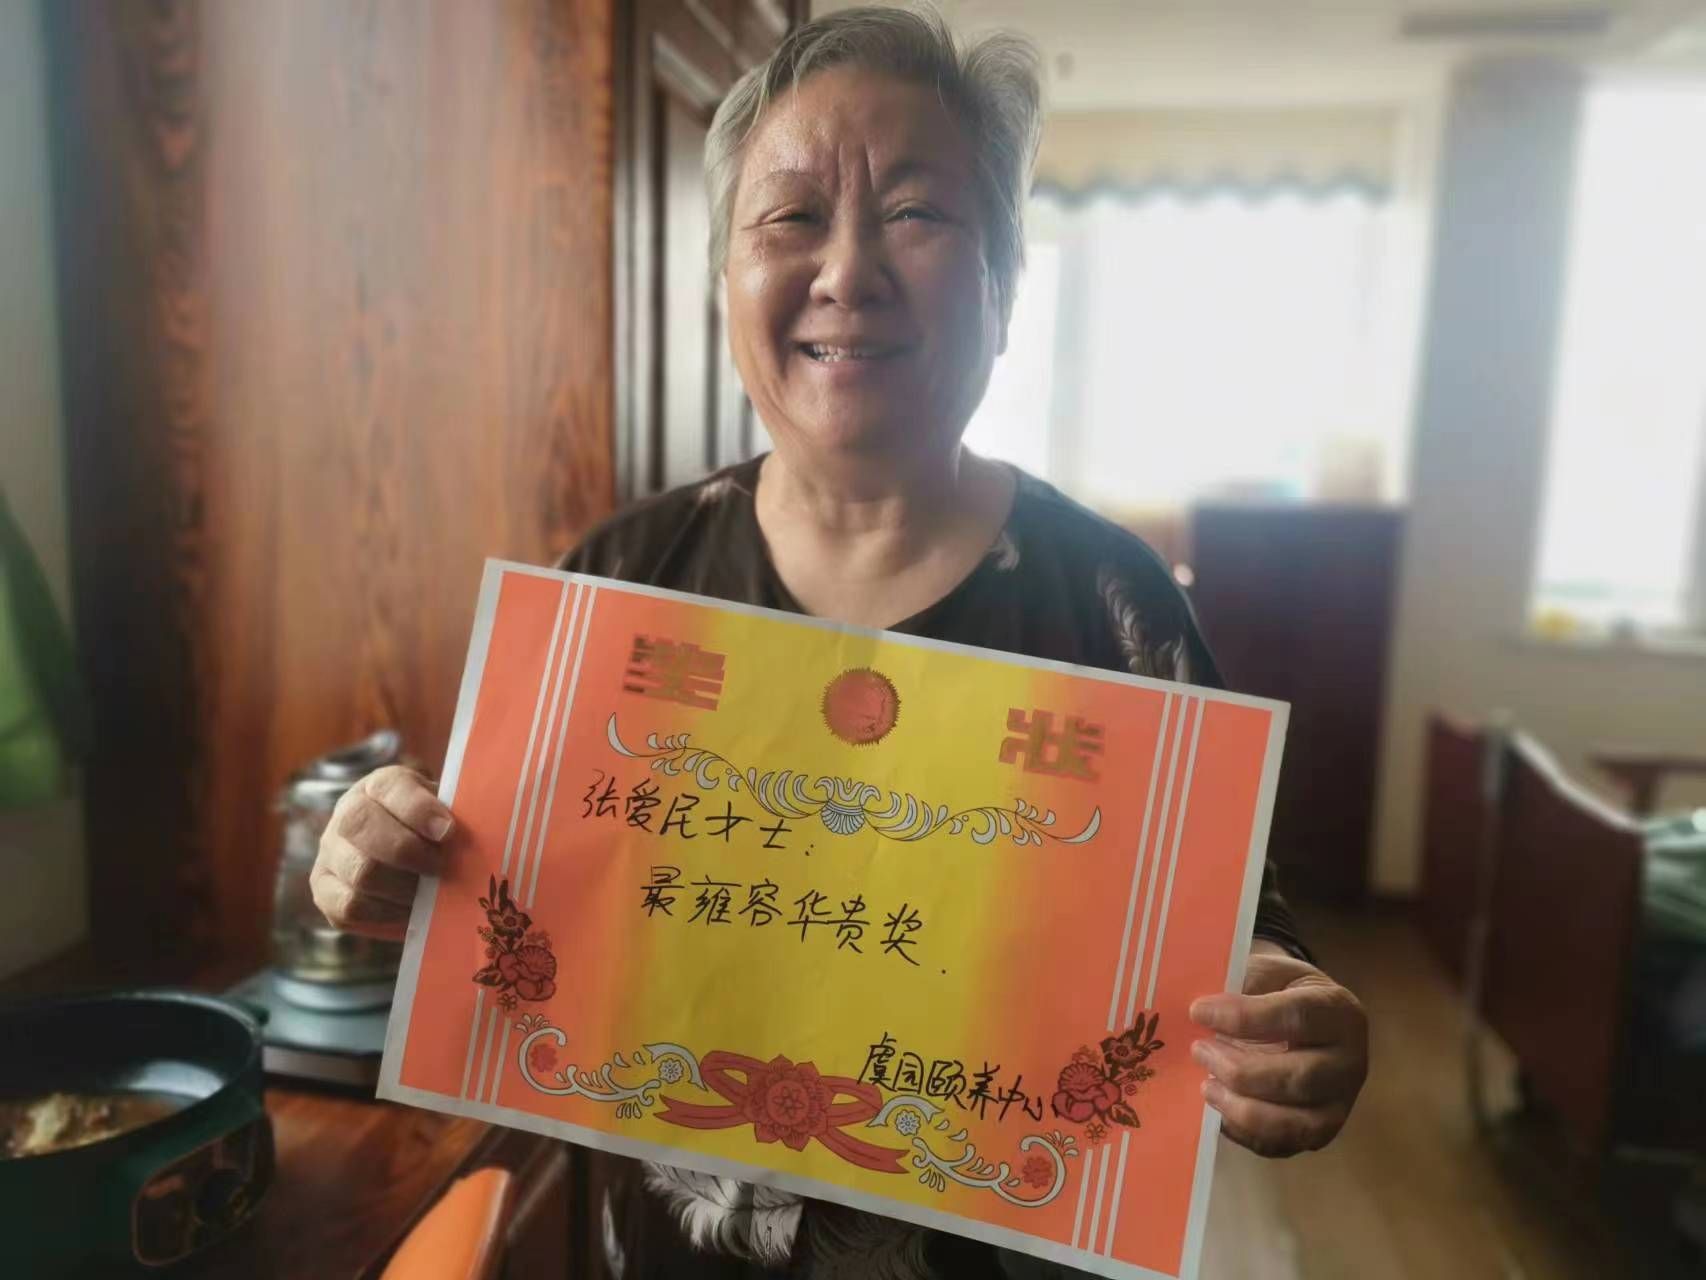 奖 状
张爱民女士：
最雍容华贵奖.
虞园颐养中心